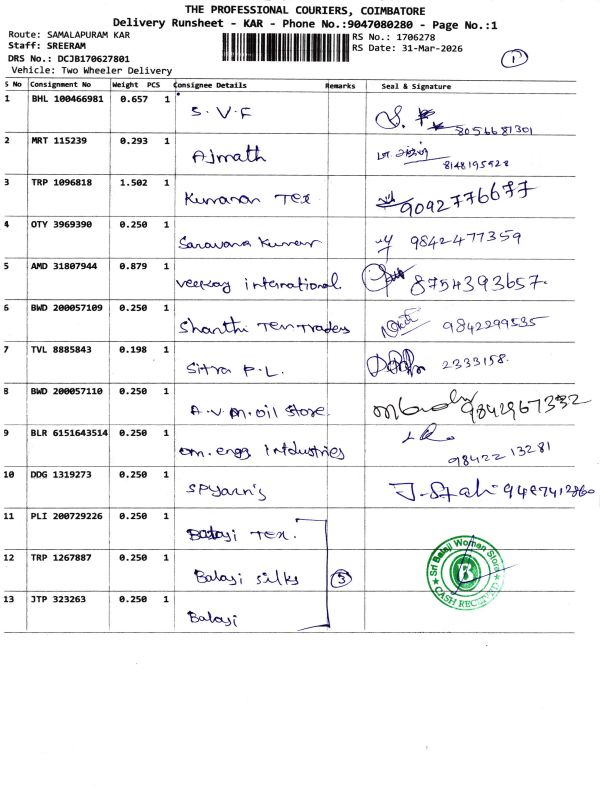 THE PROFESSIONAL COURIERS, COIMBATORE
Delivery Runsheet - KAR - Phone No.:9047080280 - Page No.:1
Route: SAMALAPURAM KAR
Staff: SREERAM
DRS No.: DCJB170627801
Vehicle: Two Wheeler Delivery
RS No.: 1706278
RS Date: 31-Mar-2026
1
S No Consignment No Weight PCS Consignee Details Remarks Seal & Signature
1 BHL 100466981 0.657 1 S.V.F 8056681301
2 MRT 115239 0.293 1 Ajmath 8148195928
3 TRP 1096818 1.502 1 Kumaran Tex 9092776677
4 OTY 3969390 0.250 1 Saravana Kumar 9842477359
5 AMD 31807944 0.879 1 veekay international 8754393657.
6 BWD 200057109 0.250 1 Shanthi Tex Traders 9842299535
7 TVL 8885843 0.198 1 Sitra P.L. 2333158.
8 BWD 200057110 0.250 1 A.V.M.oil Store 9842967332
9 BLR 6151643514 0.250 1 om.engg Industries 98422 13281
10 DDG 1319273 0.250 1 SPyarn's 9487412860
11 PLI 200729226 0.250 1 Balaji Tex.
12 TRP 1267887 0.250 1 Balaji silks 3
13 JTP 323263 0.250 1 Balaji
Sri Balaji Women Store
B
CASH RECEIVED